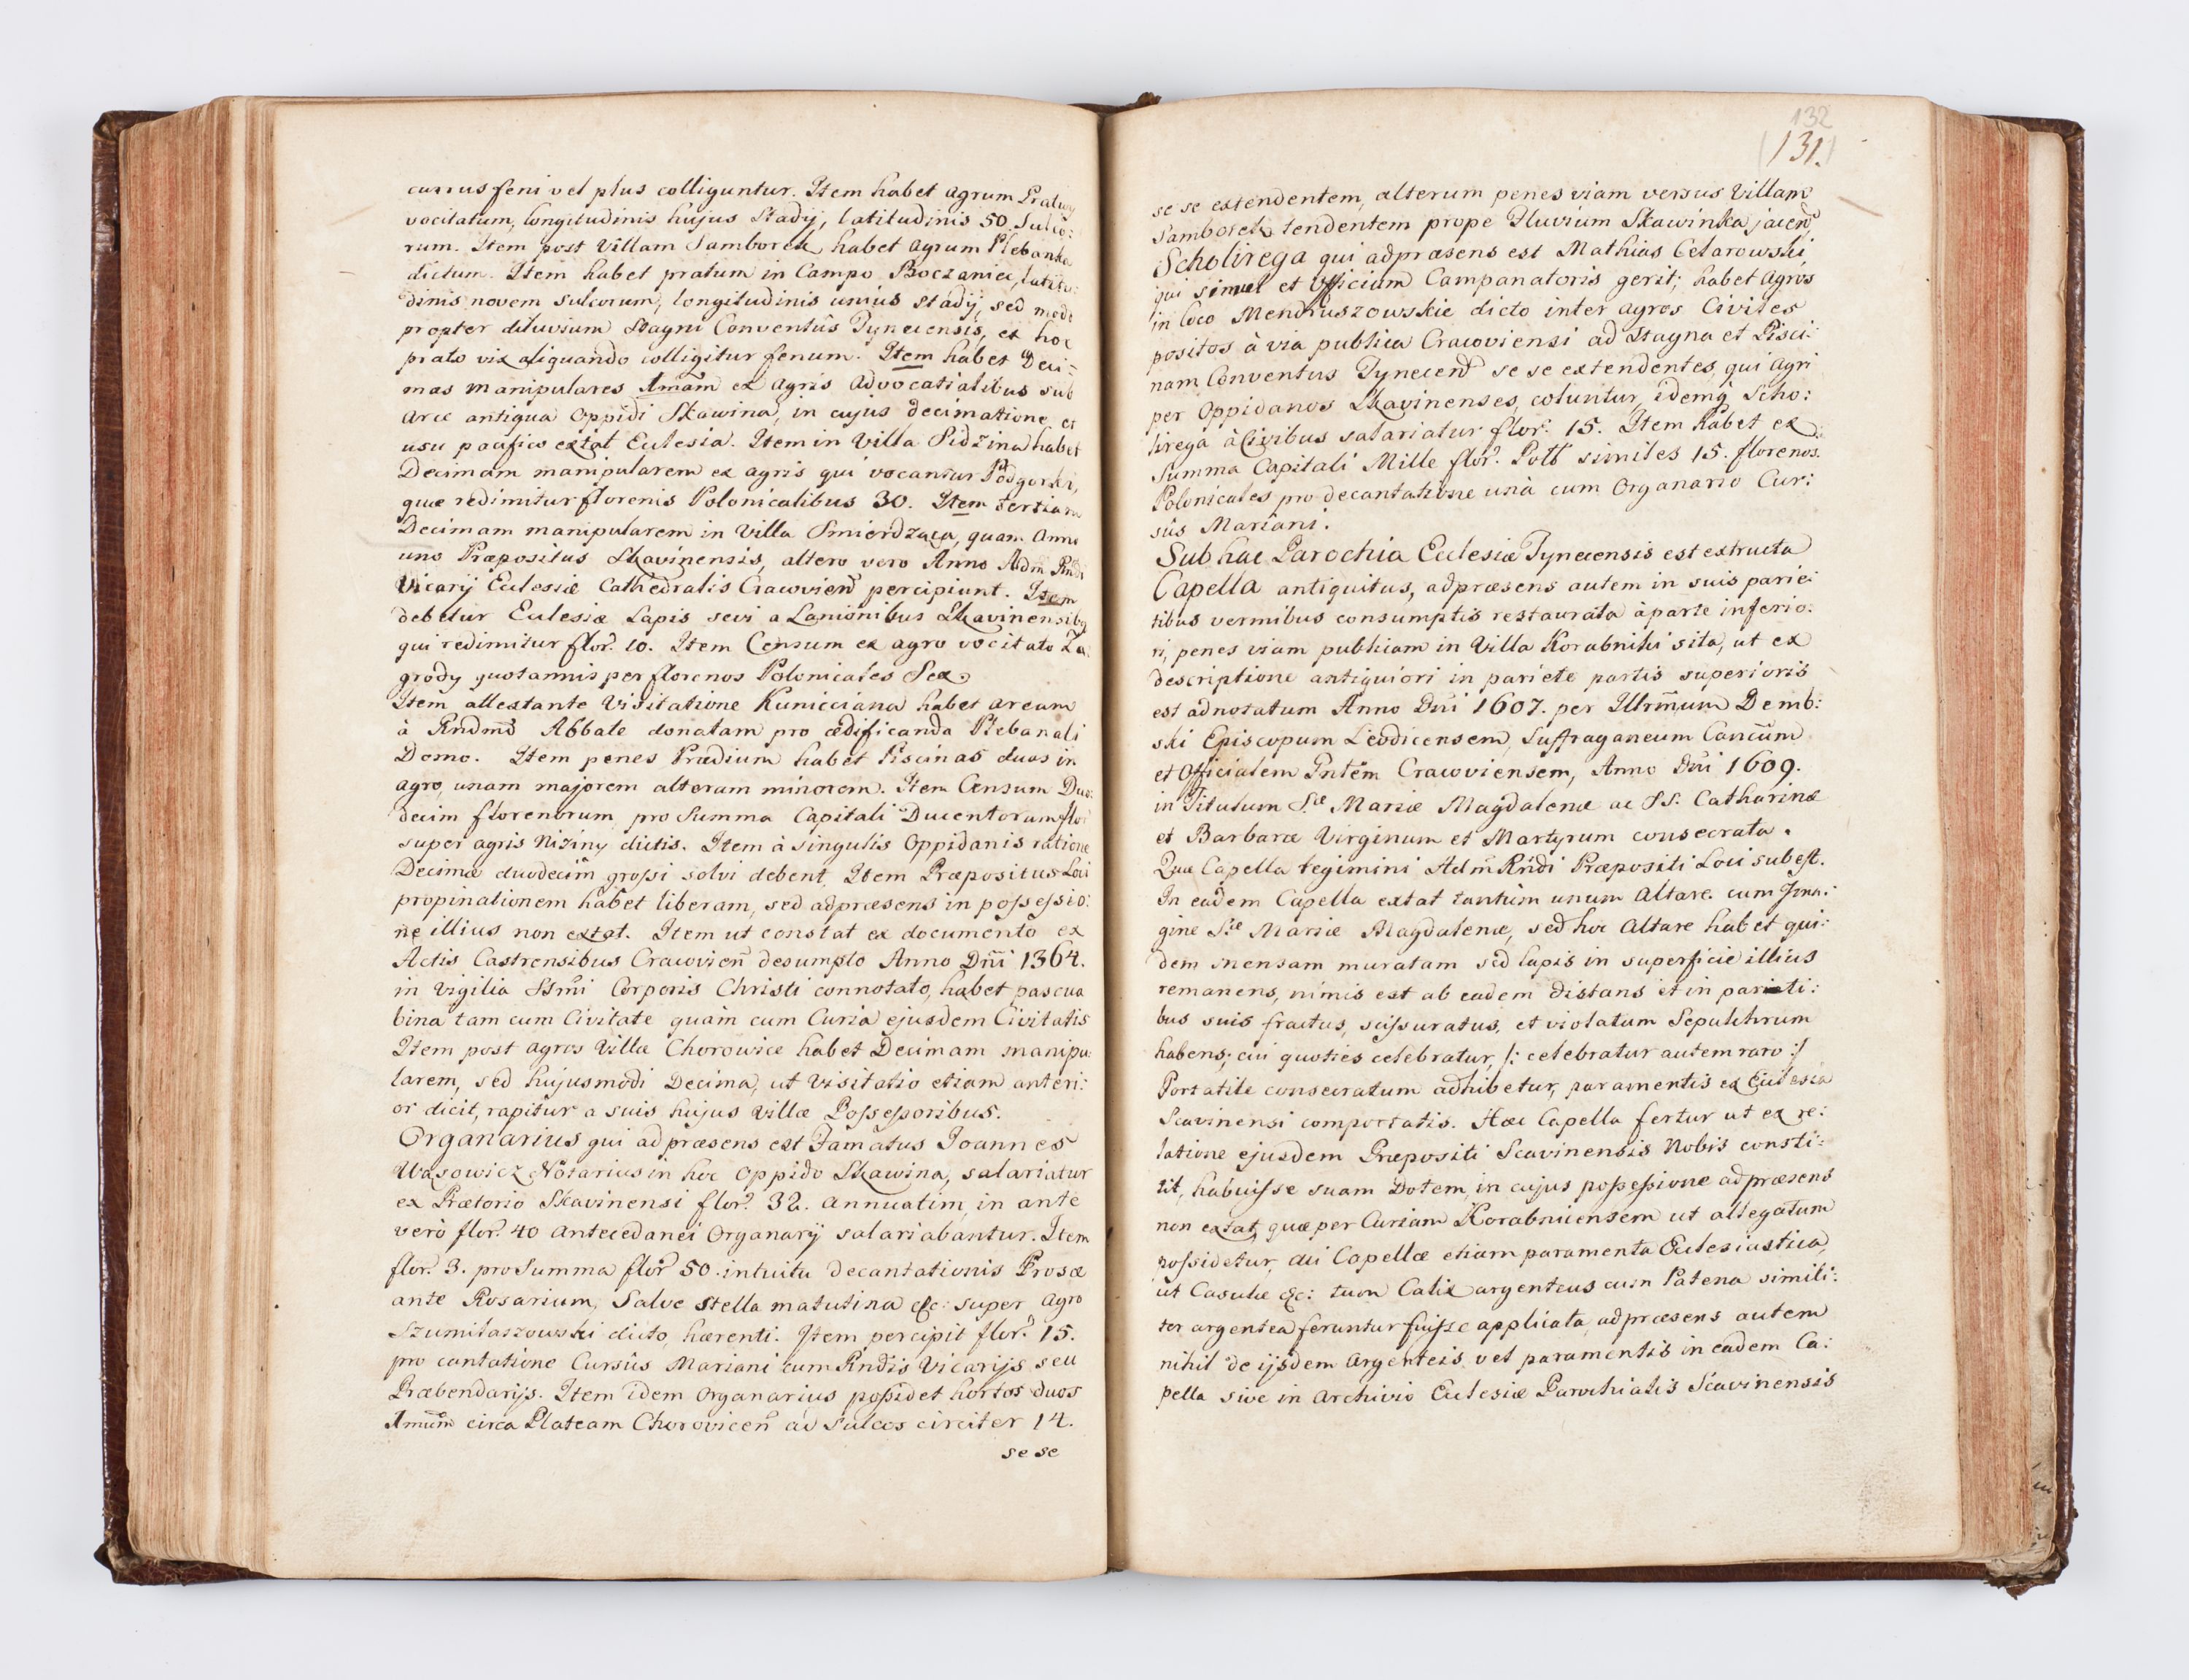 currus feni vel plus colliguntur. Item habet agrum
vocitatum, longitudinis hujus Stadij, latitudinis 50. Sulco:
rum. Item post Villam Samborek habet agrum Plebanka
dictum. Item habet pratum in Campo Boczaniec, latitu:
dinis novem sulcorum, longitudinis unius stadij, sed modo
propter diluvium Stagni Conventûs Tynecensis, ex hoc
prato vix aliquando colligitur fenum. Item habet Deci:
mas manipulares Imam ex agris advocatialibus sub
arce antiqua Oppidi Skawina, in cujus decimatione et
usu pacifico extat Ecclesia. Item in Villa Sidzina habet
Decimam manipularem ex agris qui vocantur Podgorski,
quæ redimitur florenis Polonicalibus 30. Item tertiam
Decimam manipularem in Villa Smierdzaca, quam Anno
uno Præpositus Skavinensis, altero vero Anno Adm Rndi
Vicarij Ecclesiæ Cathedralis Cracovien percipiunt. Item
debetur Ecclesiæ Lapis sevi a Lanionibus Skavinensibus
qui redimitur flor. 10. Item Censum ex agro vocitato Za
grody quotannis per florenos Polonicales Sex.
Item attestante Visitatione Kunicciana habet aream
à Rndmo Abbate donatam pro ædificanda Plebanali
Domo. Item penes Prædium habet Piscinas duas in
agro, unam majorem alteram minorem. Item Censum Duo:
decim florenorum pro Summa Capitali Ducentorum flor
super agris Niziny dictis. Item à singulis Oppidanis ratione
Decimæ duodecim grossi solvi debent. Item Præpositus Loci
propinationem habet liberam, sed adpræsens in possessio:
ne illius non extat. Item ut constat ex documento ex
Actis Castrensibus Cracovien desumpto Anno Dni 1364.
in Vigilia SSmi Corporis Christi connotato, habet pascua
bina tam cum Civitate quàm cum Curia ejusdem Civitatis
Item post agros Villæ Chorowice habet Decimam manipu:
larem, sed hujusmodi Decima, ut Visitatio etiam anteri:
or dicit, rapitur a suis hujus Villæ Possessoribus.
Organarius qui adpræsens est Famatus Joannes
Wasowicz Notarius in hoc Oppido Skawina, salariatur
ex Prætorio Skavinensi flor. 32. annuatim, in ante
verò flor. 40 antecedanei Organarij salariabantur. Item
flor. 3. pro Summa flor 50. intuitu decantationis Prosæ
ante Rosarium, Salve Stella matutina &c: super agro
Szumilaszowski dicto, hærenti. Item percipit flor. 15.
pro cantatione Cursûs Mariani cum Rndis Vicarijs seu
Præbendarijs. Item idem Organarius possidet hortos duos
Imum circa Plateam Chorovicen ad Sulcos circiter 14.
se se
132
(131.)
se se extendentem, alterum penes viam versus Villam
Samborek tendentem prope Fluvium Skawinka jacen,
Scholirega qui adpræsens est Mathias Cetarowski,
qui simul et officium Campanatoris gerit; habet agros
in loco Mendruszowskie dicto inter agros Civiles
positos à via publica Cracoviensi ad Stagna et Pisci:
nam Conventus Tynecen se se extendentes, qui agri
per Oppidanos Skavinenses coluntur, idemq Scho:
lirega à Civibus salariatur flor. 15. Item habet ex
Summa Capitali Mille flor. Poll similes 15. florenos
Polonicales pro decantatione unà cum Organario Cur:
sûs Mariani.
Sub hac Parochia Ecclesiæ Tynecensis est extructa
Capella antiquitus, adpræsens autem in suis parie:
tibus vermibus consumptis restaurata à parte inferio:
ri, penes viam publicam in Villa Korabniki sita, ut ex
descriptione antiquiori in pariete partis superioris
est adnotatum Anno Dni 1607. per Illrmum Demb:
ski Episcopum Leodicensem, Suffraganeum Cancum
et Officialem Gnlem Cracoviensem, Anno Dni 1609.
in Titulum Sæ Mariæ Magdalenæ ac SS. Catharinæ
et Barbaræ Virginum et Martyrum consecrata.
Quæ Capella regimini Adm Rndi Præpositi Loci subest.
In eadem Capella extat tantùm unum Altare cum Ima:
gine Stæ Mariæ Magdalenæ, sed hoc Altare habet qui:
dem mensam muratam sed lapis in superficie illius
remanens, nimis est ab eadem distans et in parieti:
bus suis fractus, scissuratus, et violatum Sepulchrum
habens, cui quoties celebratur, /: celebratur autem raro :/
Portatile consecratum adhibetur, paramentis ex Ecclesia
Scavinensi comportatis. Hæc Capella fertur ut ex re:
latione ejusdem Præpositi Scavinensis Nobis consti:
tit, habuisse suam Dotem, in cujus possessione adpræsens
non extat, quæ per Curiam Korabnicensem ut allegatum
possidetur, cui Capellæ etiam paramenta Ecclesiastica,
ut Casulæ &c: tum Calix argenteus cum Patena simili:
ter argentea feruntur fuisse applicata, adpræsens autem
nihil de ijsdem argenteis vel paramentis in eadem Ca:
pella sive in Archivio Ecclesiæ Parochialis Scavinensis